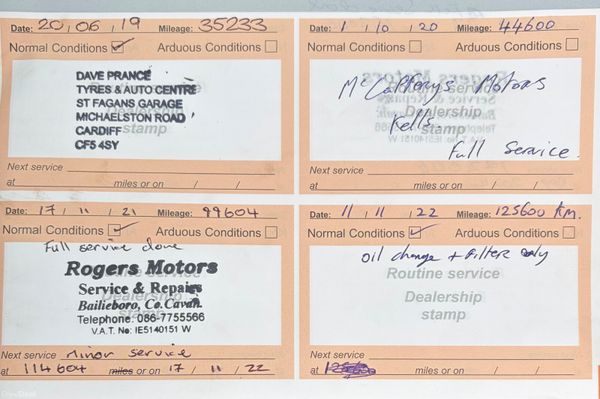 Date: 20 / 06 / 19 Mileage: 35233
Normal Conditions ☑ Arduous Conditions ☐
DAVE PRANCE
TYRES & AUTO CENTRE
ST FAGANS GARAGE
MICHAELSTON ROAD
CARDIFF
CF5 4SY
Dealership
stamp
Next service
at miles or on / /
Date: 1 / 10 / 20 Mileage: 44600
Normal Conditions ☐ Arduous Conditions ☐
McCaffreys Motors
Kells.
Full Service.
Routine service
Dealership
stamp
Next service
at miles or on / /
Date: 17 / 11 / 21 Mileage: 99604
Normal Conditions ☑ Arduous Conditions ☐
Full service done
Rogers Motors
Service & Repairs
Bailieboro, Co. Cavan.
Telephone: 086-7755566
V.A.T. No: IE5140151 W
Dealership
stamp
Next service minor service
at 114604 miles or on 17 / 11 / 22
Date: 11 / 11 / 22 Mileage: 125600 Km.
Normal Conditions ☑ Arduous Conditions ☐
oil change + filter only
Routine service
Dealership
stamp
Next service
at miles or on / /